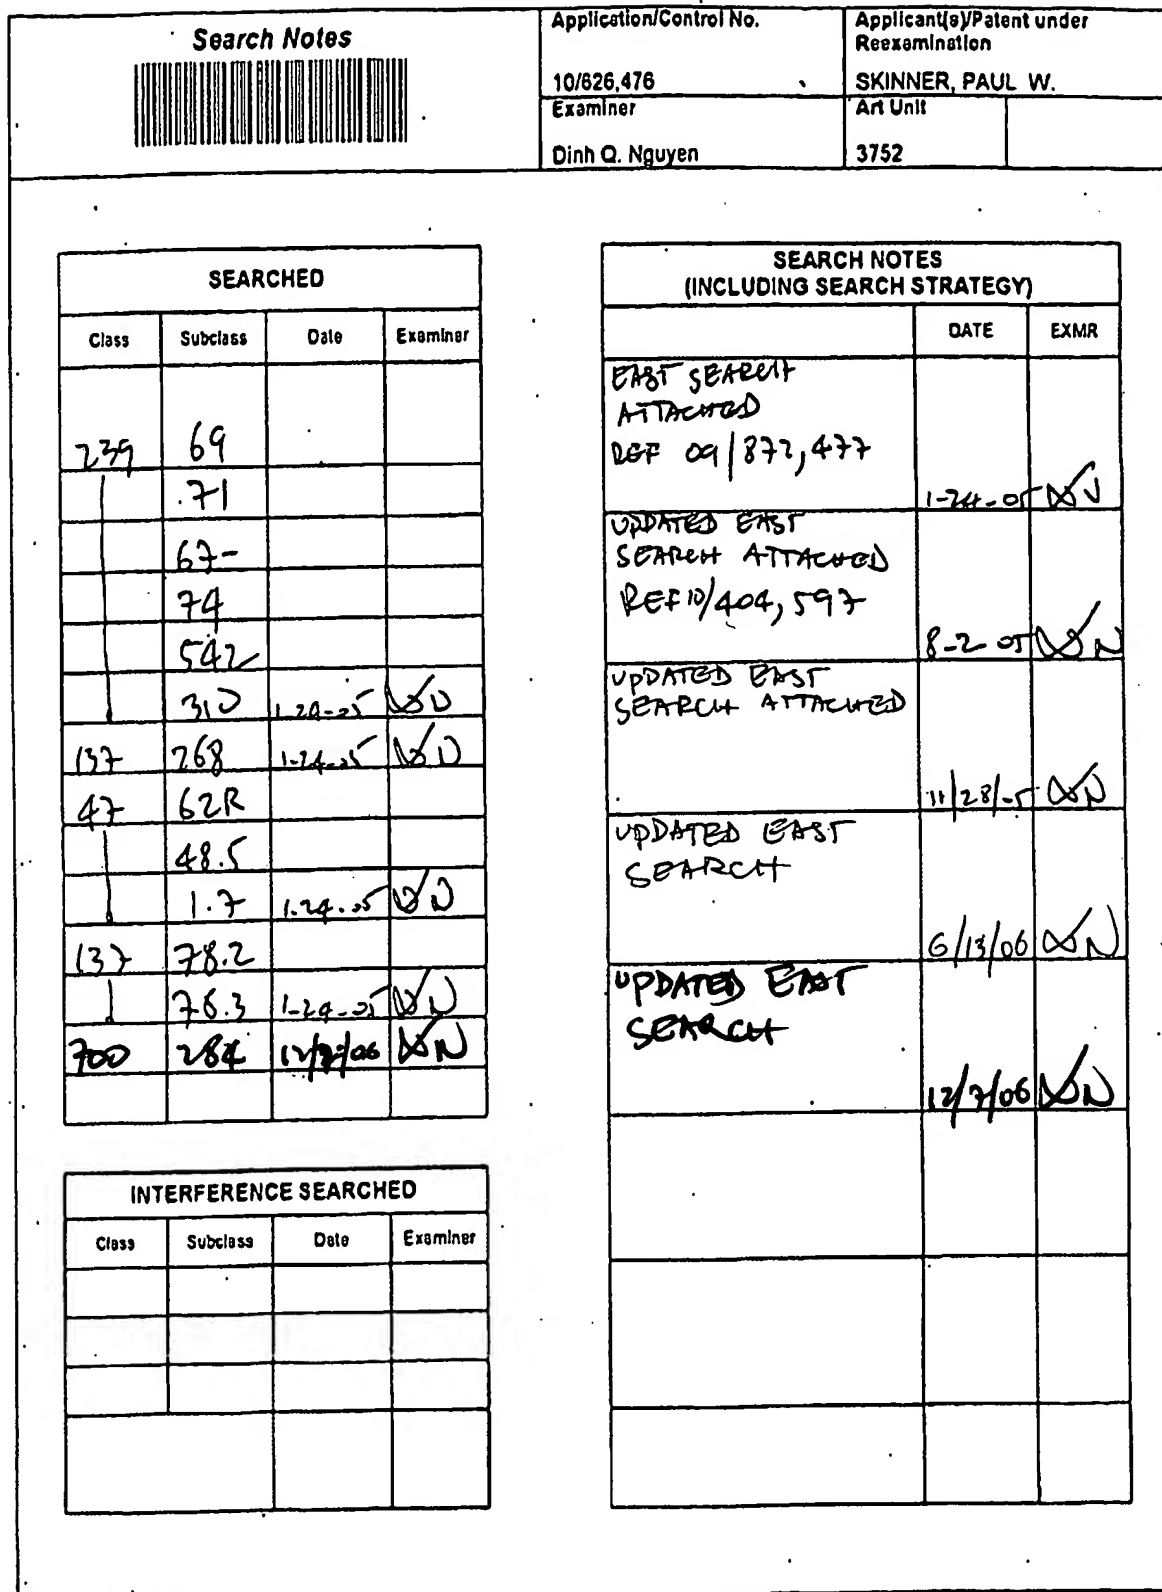 Search Notes
Application/Control No.
10/626,476
Applicant(s)/Patent under
Reexamination
SKINNER, PAUL W.
Examiner
Dinh Q. Nguyen
Art Unit
3752
SEARCHED
Class Subclass Date Examiner
239 69
71
67-
74
542
310 1-24-05 DN
137 268 1-24-05 DN
47 62R
48.5
1.7 1-24-05 DN
137 78.2
78.3 1-24-05 DN
700 284 12/7/06 DN
INTERFERENCE SEARCHED
Class Subclass Date Examiner
SEARCH NOTES
(INCLUDING SEARCH STRATEGY)
DATE EXMR
EAST SEARCH
ATTACHED
REF 09/872,477
1-24-05 DN
UPDATED EAST
SEARCH ATTACHED
REF 10/404,597
8-2-05 DN
UPDATED EAST
SEARCH ATTACHED
11/28/05 DN
UPDATED EAST
SEARCH
6/13/06 DN
UPDATED EAST
SEARCH
12/7/06 DN